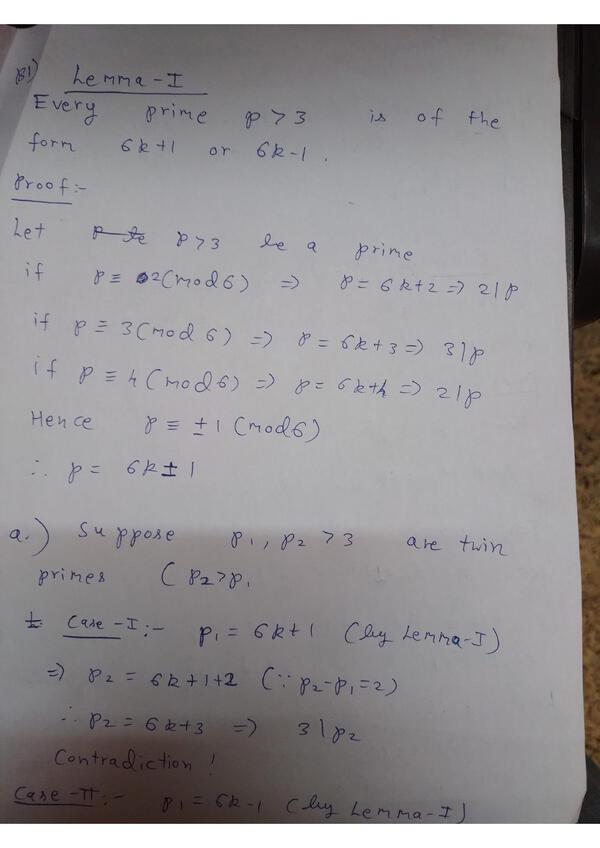 B1) Lemma-I
Every prime p>3 is of the
form 6k+1 or 6k-1.
Proof:-
Let p>3 be a prime
if p≡ 2(mod6) => p= 6k+2 => 2|p
if p≡ 3(mod 6) => p = 6k+3 => 3|p
if p ≡ 4(mod6) => p= 6k+4 => 2|p
Hence p≡ ±1 (mod6)
∴ p= 6k±1
a.) Suppose p₁, p₂ >3 are twin
primes (p₂>p₁
Case-I:- p₁ = 6k+1 (by Lemma-I)
=> p₂ = 6k+1+2 (∵ p₂-p₁=2)
∴ p₂ = 6k+3 => 3|p₂
Contradiction!
Case-II:- p₁ = 6k-1 (by Lemma-I)